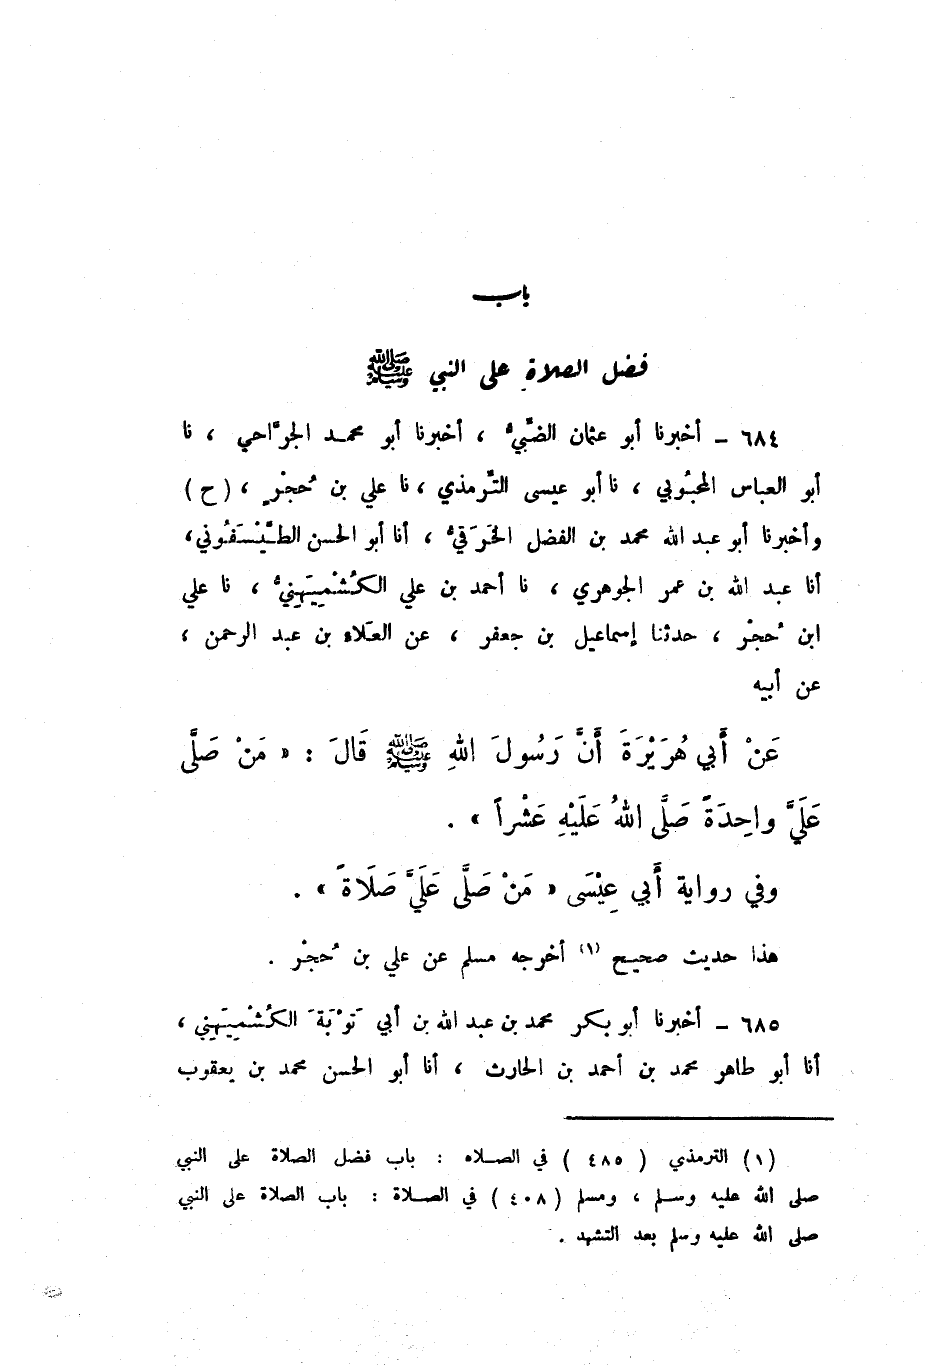 باب
فضل الصلاة على النبي ﷺ
٦٨٤ – أخبرنا أبو عثمان الضَّبِّيُّ ، أخبرنا أبو محمد الجرَّاحي ، نا
أبو العباس المحبُوبي ، نا أبو عيسى التِّرمذي ، نا علي بن حُجْرٍ ، (ح)
وأخبرنا أبو عبد الله محمد بن الفضل الخَرَقيُّ ، أنا أبو الحسن الطَّيْسَفُوني،
أنا عبد الله بن عمر الجوهري ، نا أحمد بن علي الكُشْمِيهَنِيُّ ، نا علي
ابن حُجْر ، حدثنا إسماعيل بن جعفر ، عن العَلاء بن عبد الرحمن ،
عن أبيه
عَنْ أَبي هُرَيْرَةَ أَنَّ رَسُولَ اللهِ ﷺ قَالَ : « مَنْ صَلَّى
عَلَيَّ واحِدَةً صَلَّى اللهُ عَلَيْهِ عَشْراً » .
وفي رواية أَبي عِيْسَى « مَنْ صَلَّى عَلَيَّ صَلَاةً » .
هذا حديث صحيح (١) أخرجه مسلم عن علي بن حُجْر .
٦٨٥ – أخبرنا أبو بكر محمد بن عبد الله بن أبي تَوْبَةَ الكُشْمِيهَني ،
أنا أبو طاهر محمد بن أحمد بن الحارث ، أنا أبو الحسن محمد بن يعقوب
(١) الترمذي ( ٤٨٥ ) في الصلاه : باب فضل الصلاة على النبي
صلى الله عليه وسلم ، ومسلم (٤٠٨) في الصلاة : باب الصلاة على النبي
صلى الله عليه وسلم بعد التشهد .